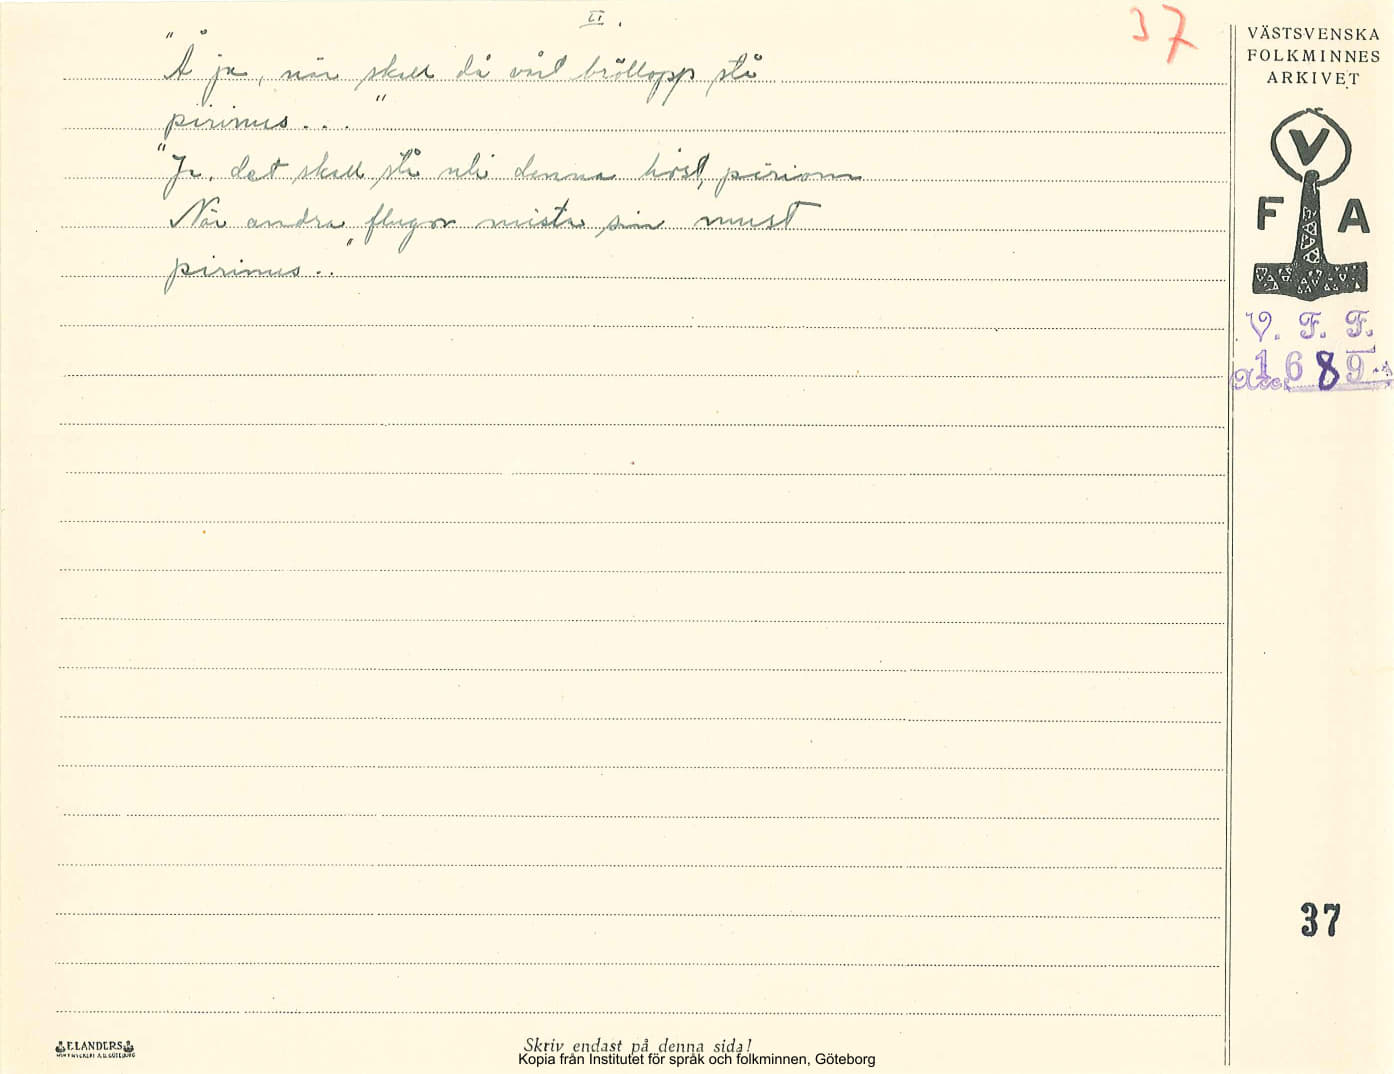 II.
37
"Å ja, när skall då vårt bröllopp stå
pirimus..."
"Ja, det skall stå uti denna höst, pirium
När andra flugor mista sin must
pirimus.."
VÄSTSVENSKA
FOLKMINNES
ARKIVET
V
F A
V. F. F.
1689
Acc.
37
ELANDERS
Skriv endast på denna sida!
Kopia från Institutet för språk och folkminnen, Göteborg